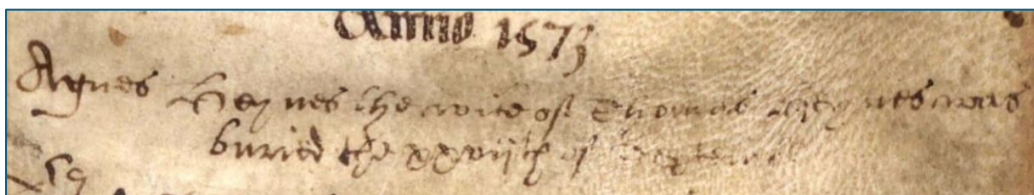 Anno 1573
Agnes Heynes the wife of Thomas Heynes was
buried the xxviijth of